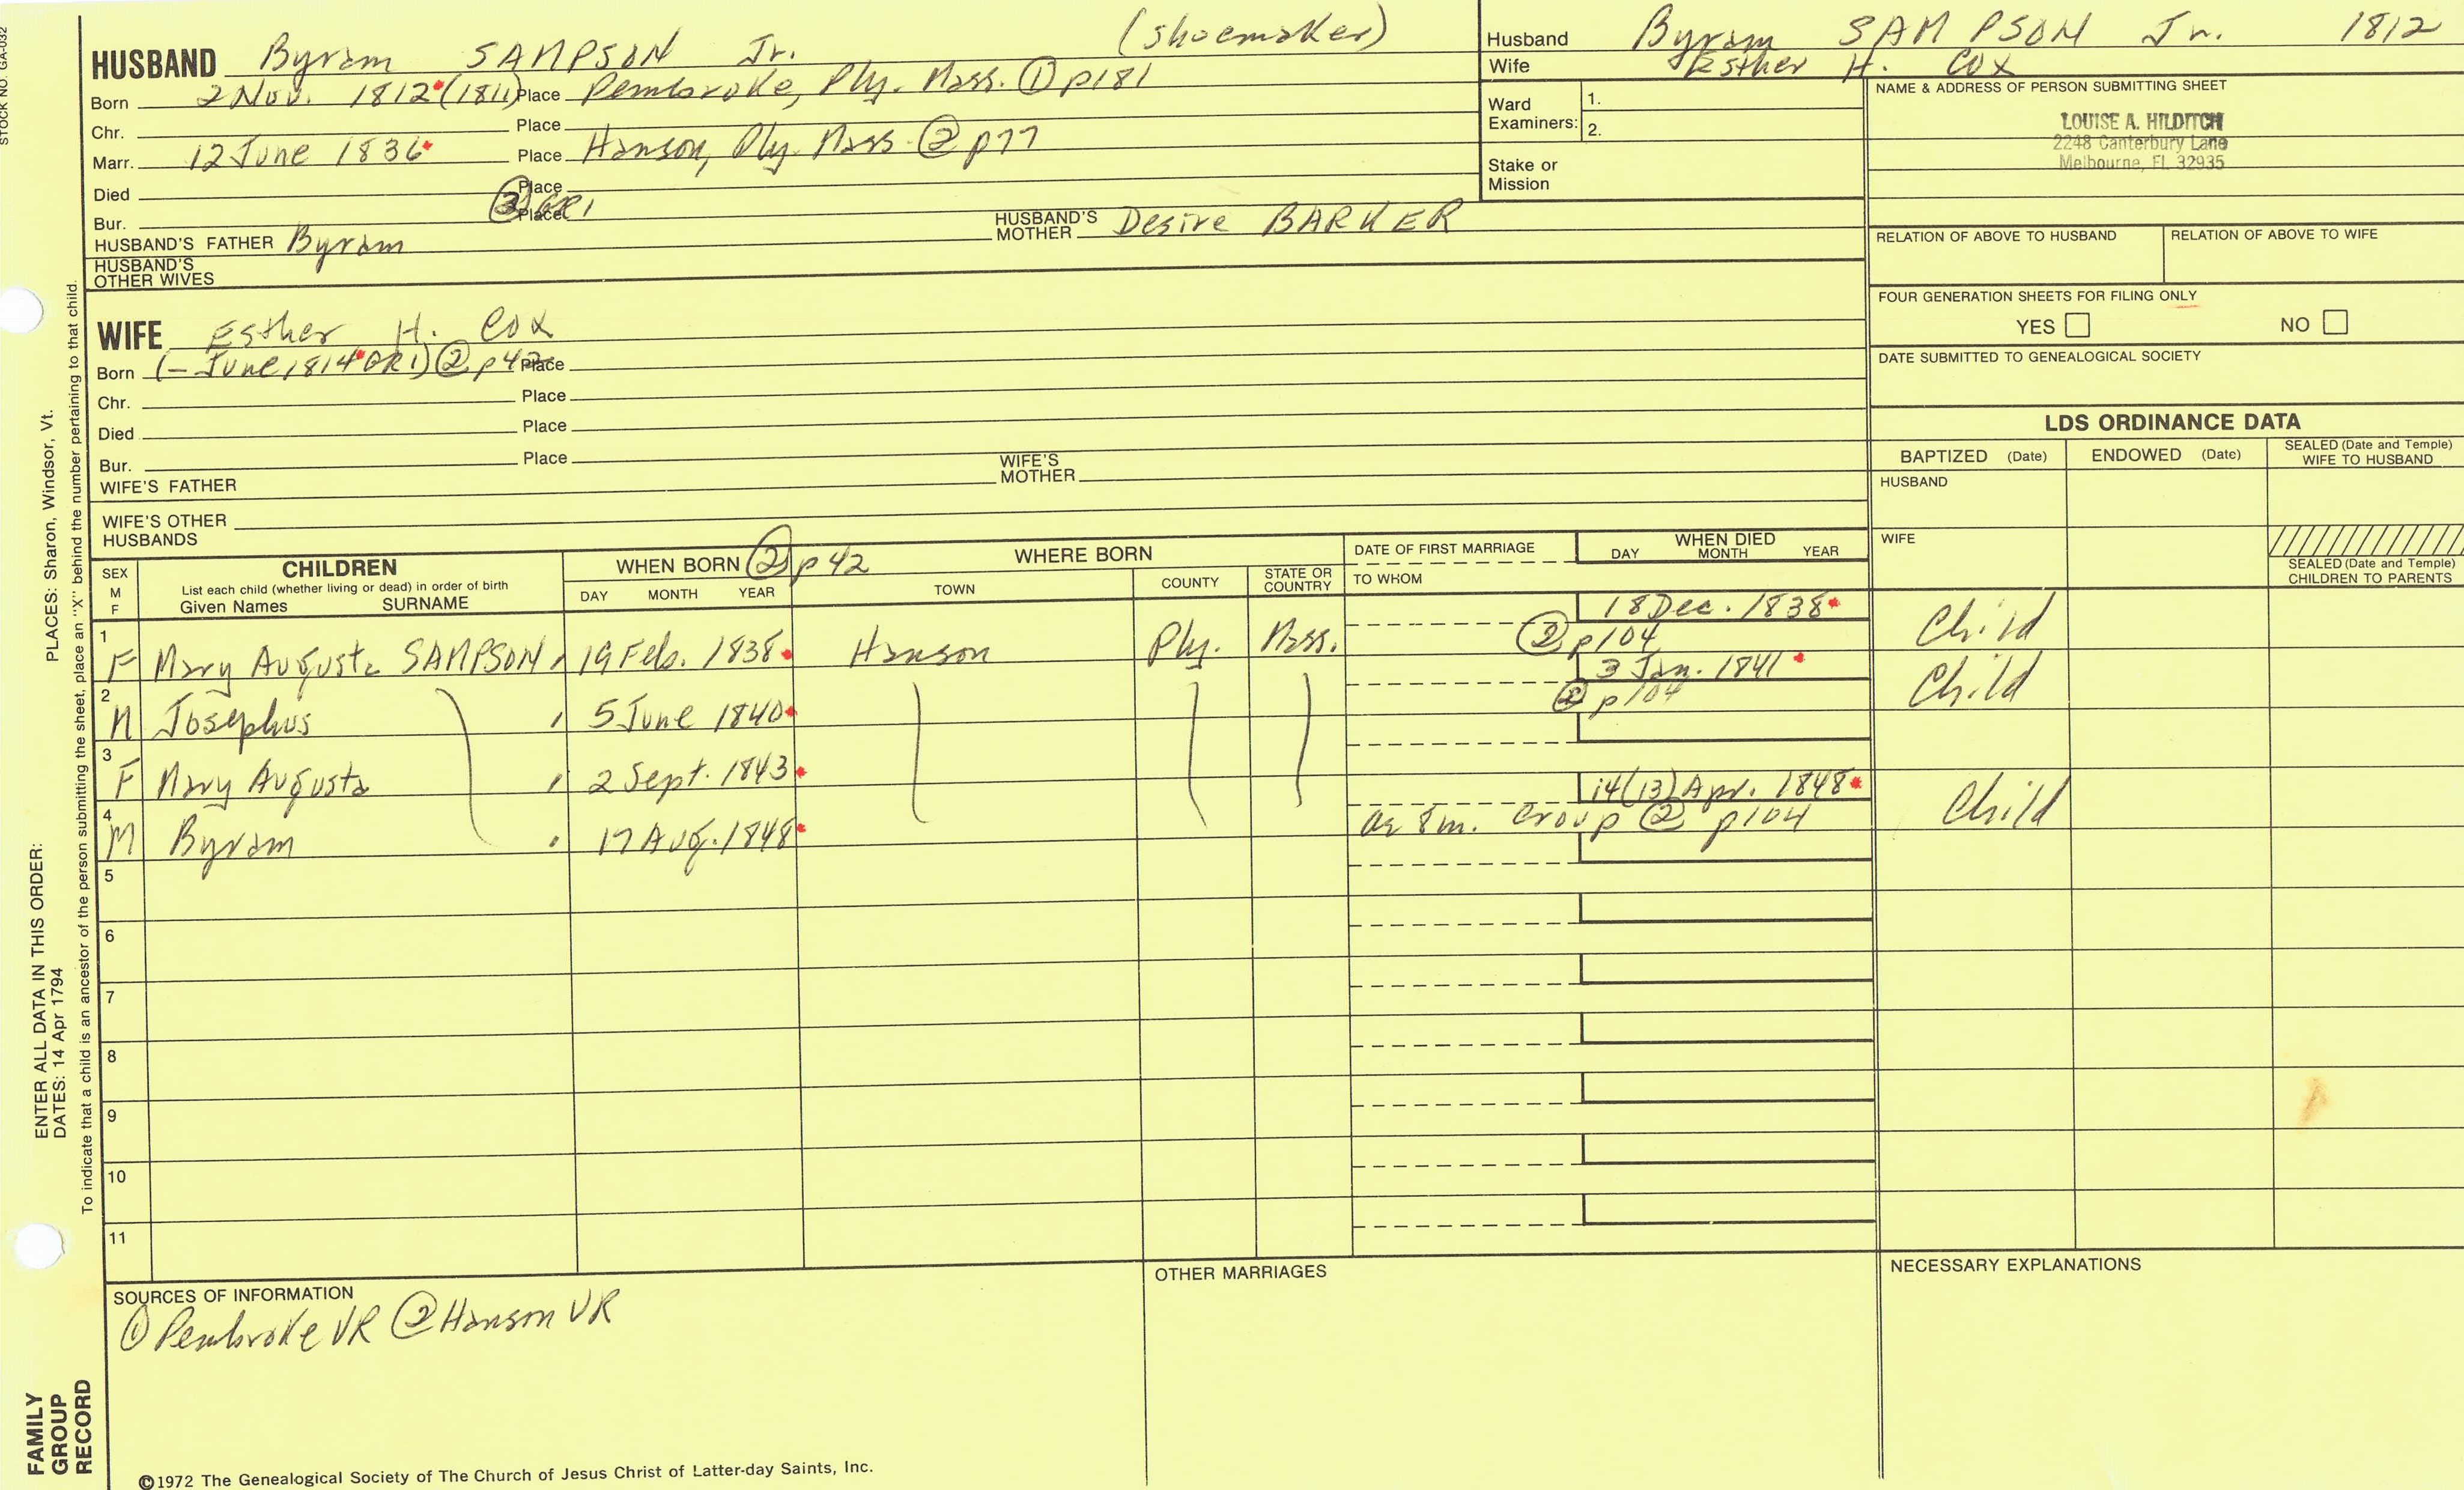 STOCK NO. GA-032
PLACES: Sharon, Windsor, Vt.
ENTER ALL DATA IN THIS ORDER:
DATES: 14 Apr 1794
To indicate that a child is an ancestor of the person submitting the sheet, place an "X" behind the number pertaining to that child.
FAMILY
GROUP
RECORD
HUSBAND Byram SAMPSON Jr. (shoemaker)
Born 2 Nov. 1812 (1811) Place Pembroke, Ply. Mass. ① p181
Chr. Place
Marr. 12 June 1836 Place Hanson, Ply. Mass ② p77
Died Place
Bur. Place
HUSBAND'S FATHER Byram HUSBAND'S MOTHER Desire BARKER
HUSBAND'S
OTHER WIVES
WIFE Esther H. COX
Born (– June 1814 GR1) ② p42 Place
Chr. Place
Died Place
Bur. Place
WIFE'S FATHER WIFE'S MOTHER
WIFE'S OTHER
HUSBANDS
Husband Byram SAMPSON Jr. 1812
Wife Esther H. COX
Ward
Examiners: 1.
2.
Stake or
Mission
NAME & ADDRESS OF PERSON SUBMITTING SHEET
LOUISE A. HILDITCH
2248 Canterbury Lane
Melbourne, FL 32935
RELATION OF ABOVE TO HUSBAND RELATION OF ABOVE TO WIFE
FOUR GENERATION SHEETS FOR FILING ONLY
YES NO
DATE SUBMITTED TO GENEALOGICAL SOCIETY
LDS ORDINANCE DATA
BAPTIZED (Date) ENDOWED (Date) SEALED (Date and Temple) WIFE TO HUSBAND
HUSBAND
WIFE
SEALED (Date and Temple)
CHILDREN TO PARENTS
SEX
M
F
CHILDREN
List each child (whether living or dead) in order of birth
Given Names SURNAME
WHEN BORN ② p42
DAY MONTH YEAR
WHERE BORN
TOWN COUNTY STATE OR COUNTRY
DATE OF FIRST MARRIAGE
TO WHOM
WHEN DIED
DAY MONTH YEAR
1 F Mary Augusta SAMPSON 19 Feb. 1838 Hanson Ply. Mass. 18 Dec. 1838 ② p104 Child
2 M Josephus 5 June 1840 3 Jan. 1841 ② p104 Child
3 F Mary Augusta 2 Sept. 1843
4 M Byram 17 Aug. 1848 14(13) Apr. 1848 ae 8m. croup ② p104 Child
5
6
7
8
9
10
11
SOURCES OF INFORMATION
① Pembroke VR ② Hanson VR
OTHER MARRIAGES
NECESSARY EXPLANATIONS
©1972 The Genealogical Society of The Church of Jesus Christ of Latter-day Saints, Inc.